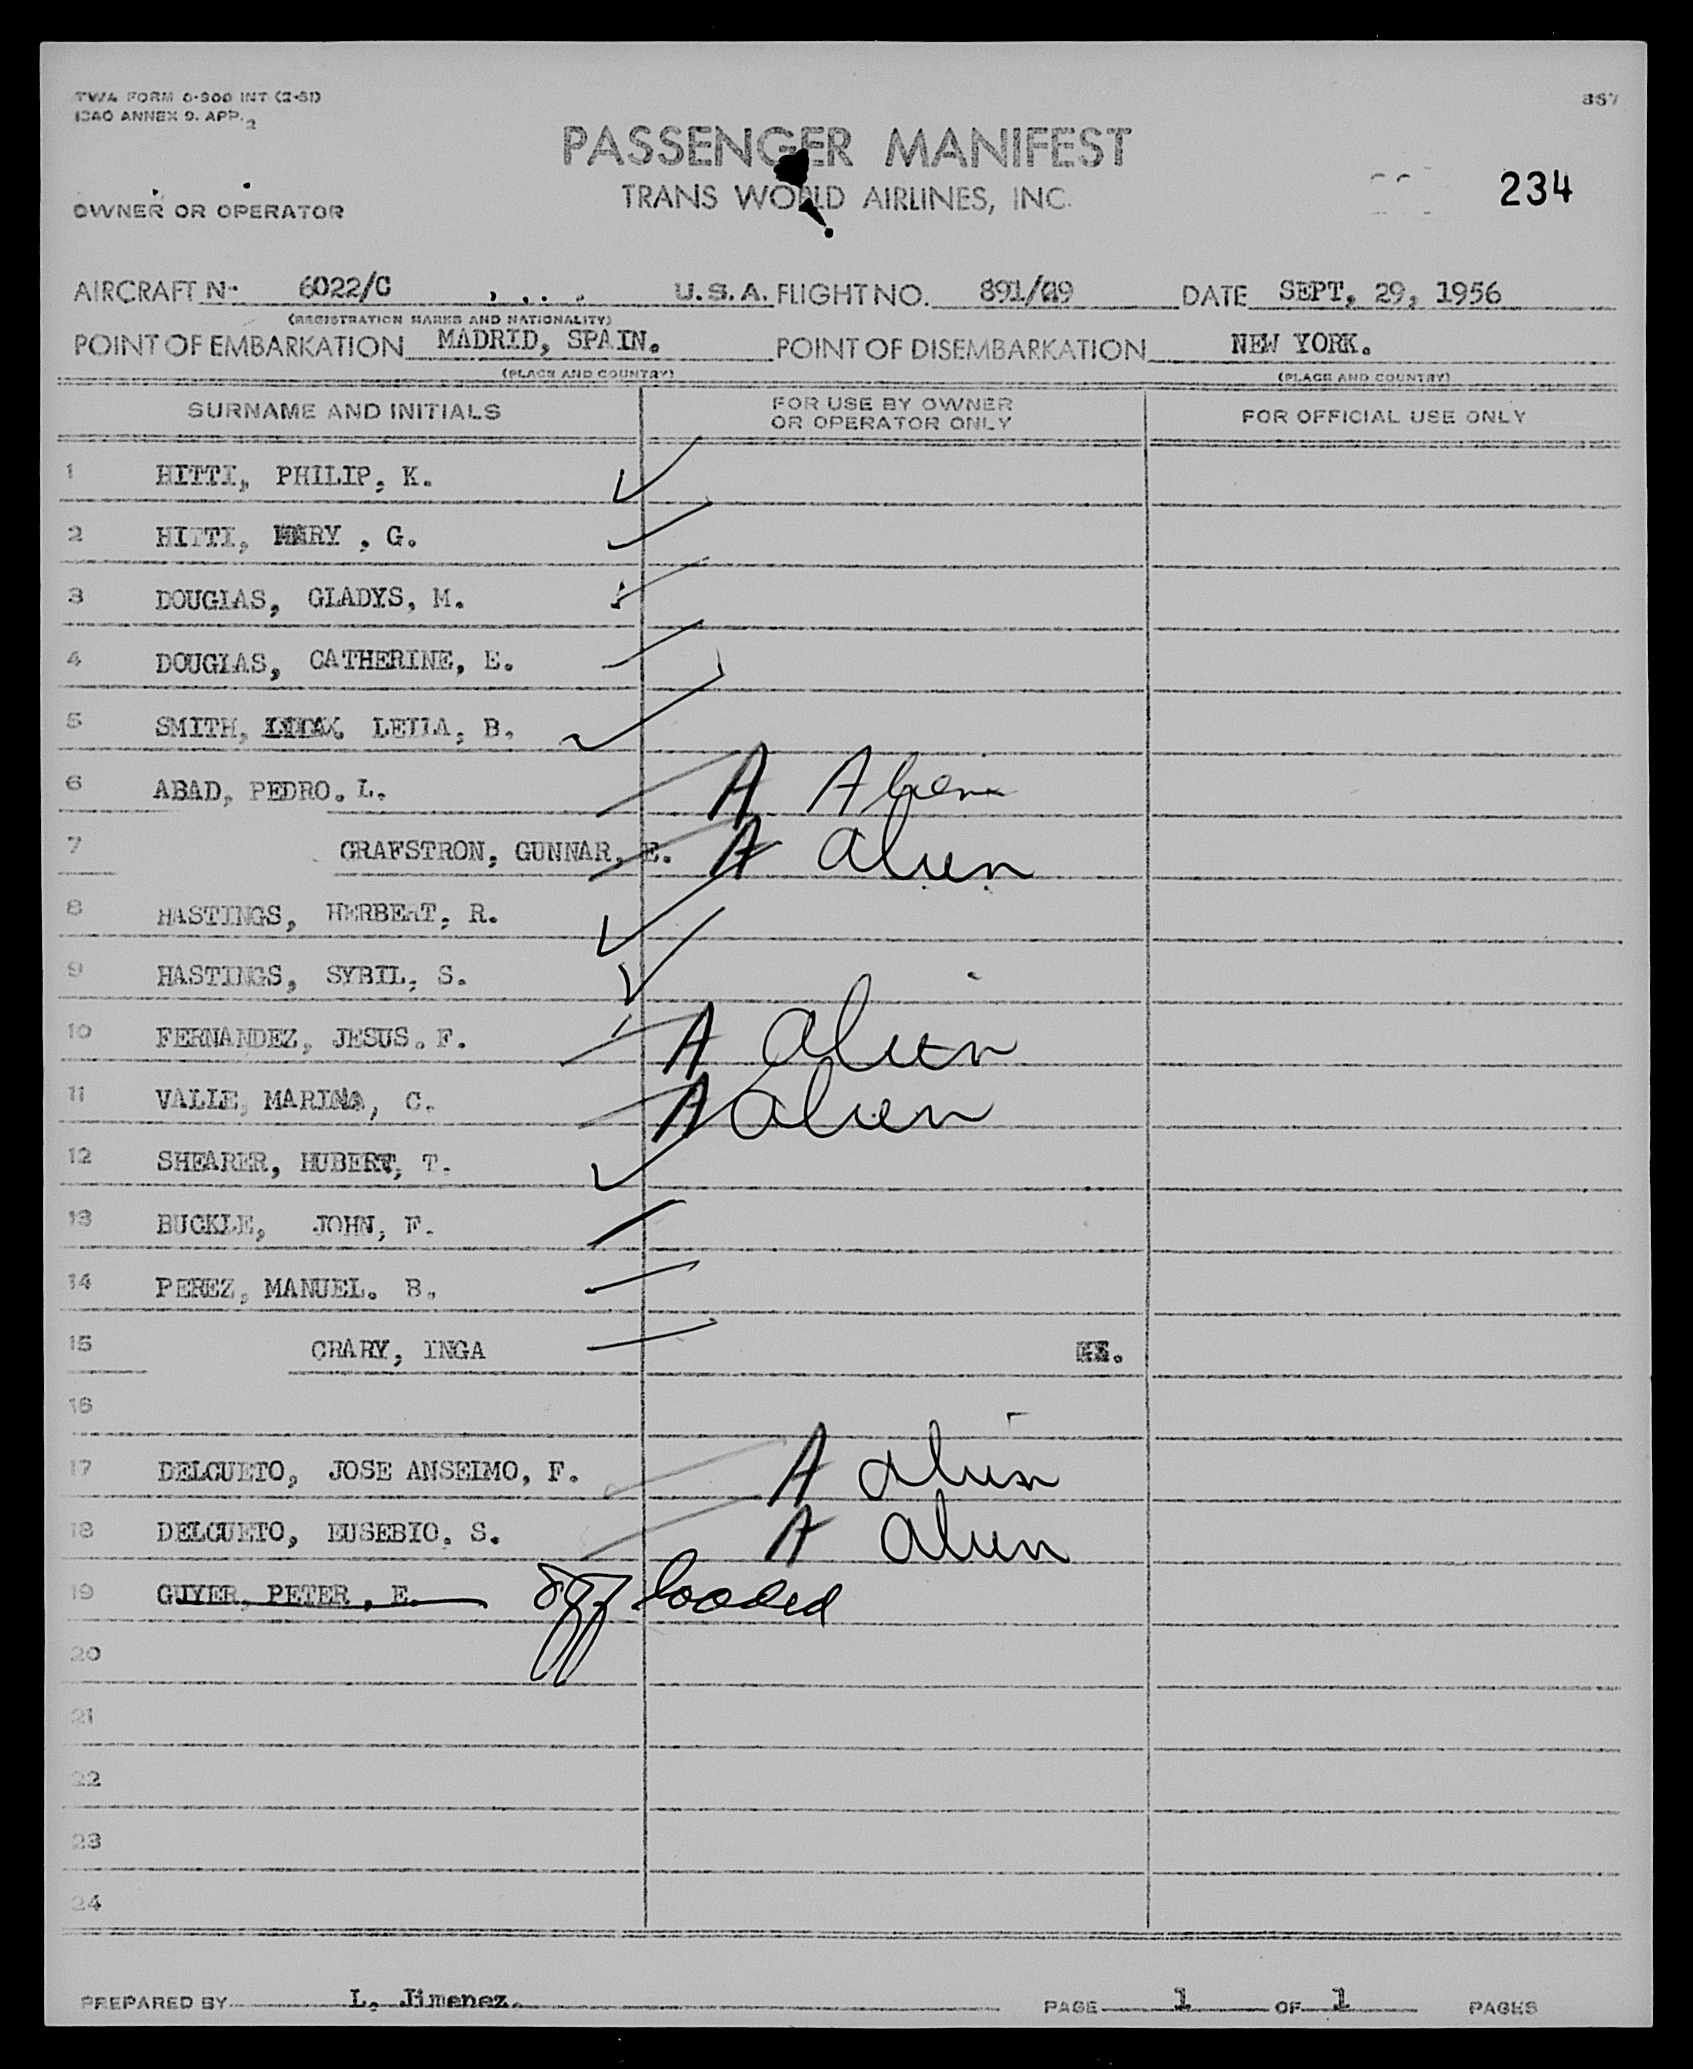 TWA FORM 0-900 INT (2-51)
ICAO ANNEX 9. APP. 2
357
PASSENGER MANIFEST
TRANS WORLD AIRLINES, INC.
234
OWNER OR OPERATOR
AIRCRAFT N- 6022/C U.S.A. FLIGHT NO. 891/G9 DATE SEPT, 29, 1956
(REGISTRATION MARKS AND NATIONALITY)
POINT OF EMBARKATION MADRID, SPAIN. POINT OF DISEMBARKATION NEW YORK.
(PLACE AND COUNTRY) (PLACE AND COUNTRY)
SURNAME AND INITIALS FOR USE BY OWNER OR OPERATOR ONLY FOR OFFICIAL USE ONLY
1 HITTI, PHILIP, K.
2 HITTI, MARY , G.
3 DOUGLAS, GLADYS, M.
4 DOUGLAS, CATHERINE, E.
5 SMITH, LEILA, B.
6 ABAD, PEDRO. L. A Alien
7 GRAFSTRON, GUNNAR, E. A alien
8 HASTINGS, HERBERT, R.
9 HASTINGS, SYBIL, S.
10 FERNANDEZ, JESUS. F. A alien
11 VALLE, MARINA, C. A alien
12 SHEARER, HUBERT, T.
13 BUCKLE, JOHN, F.
14 PEREZ, MANUEL. B.
15 CRARY, INGA
16
17 DELCUETO, JOSE ANSELMO, F. A alien
18 DELCUETO, EUSEBIO. S. A alien
19 GUYER, PETER , E. off loaded
20
21
22
23
24
PREPARED BY L. Jimenez. PAGE 1 OF 1 PAGES